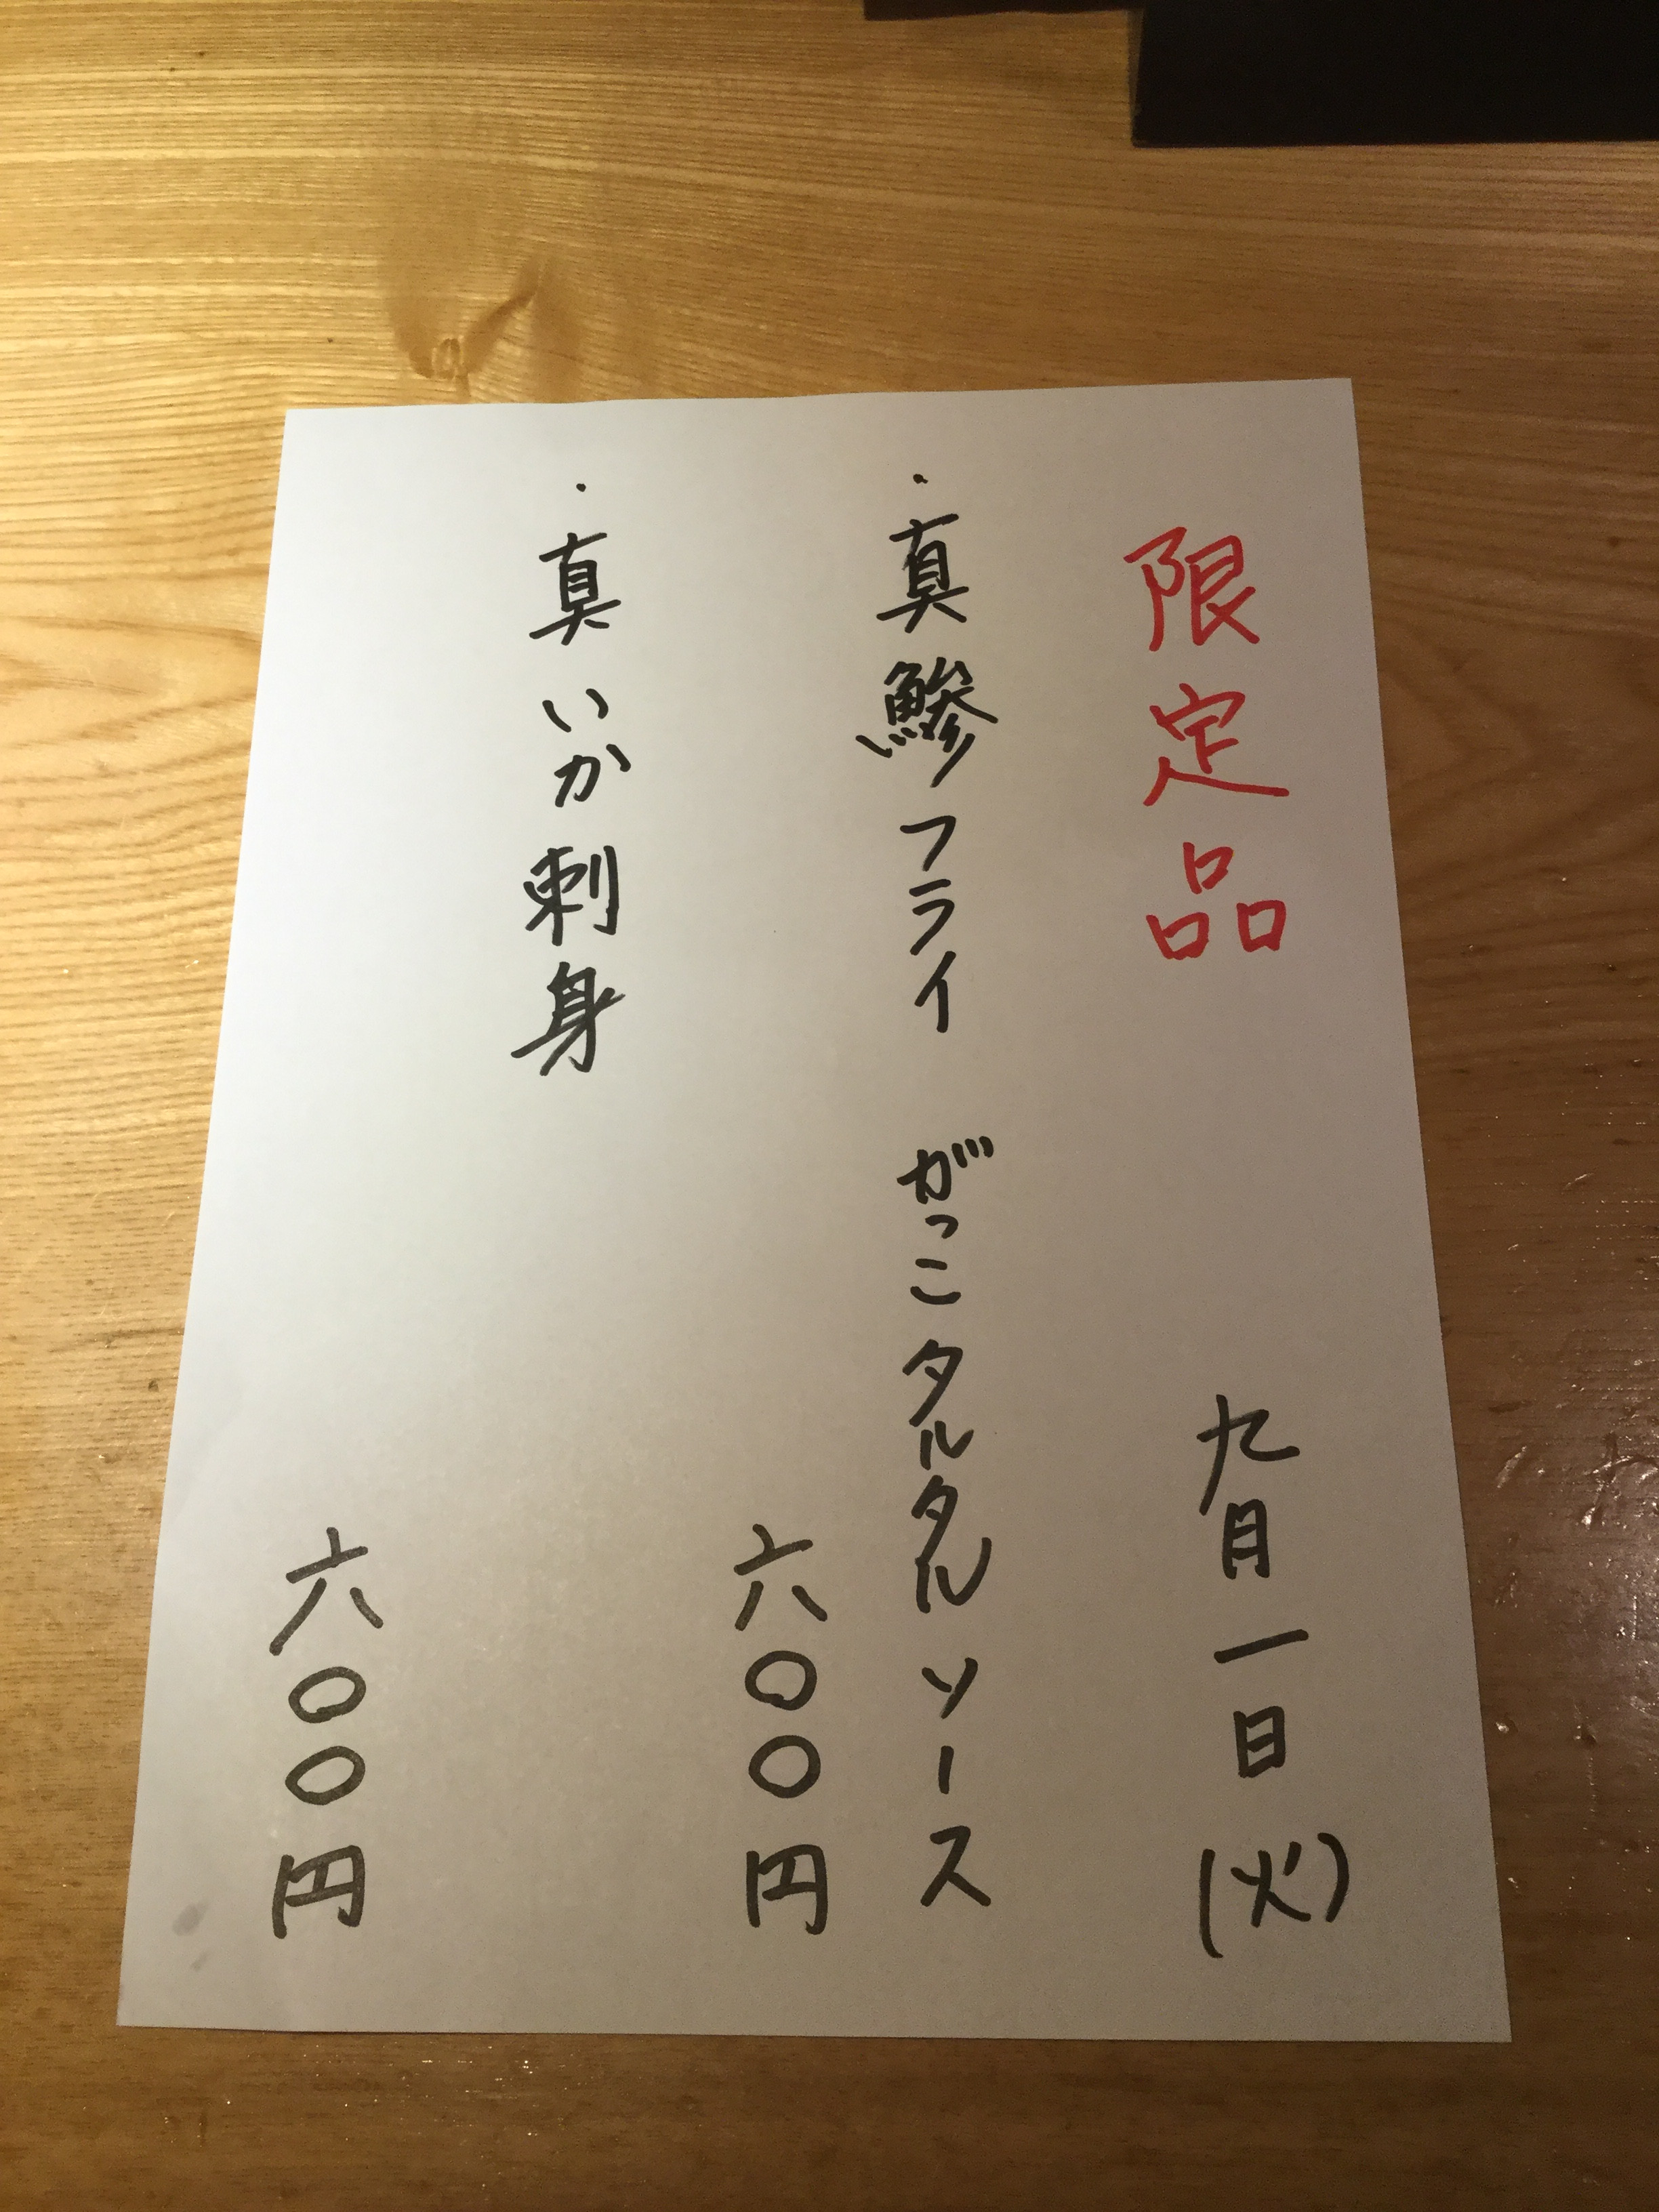 限定品　九月一日(火)
・真鯵フライ　がっこタルタルソース
六〇〇円
・真いか刺身
六〇〇円